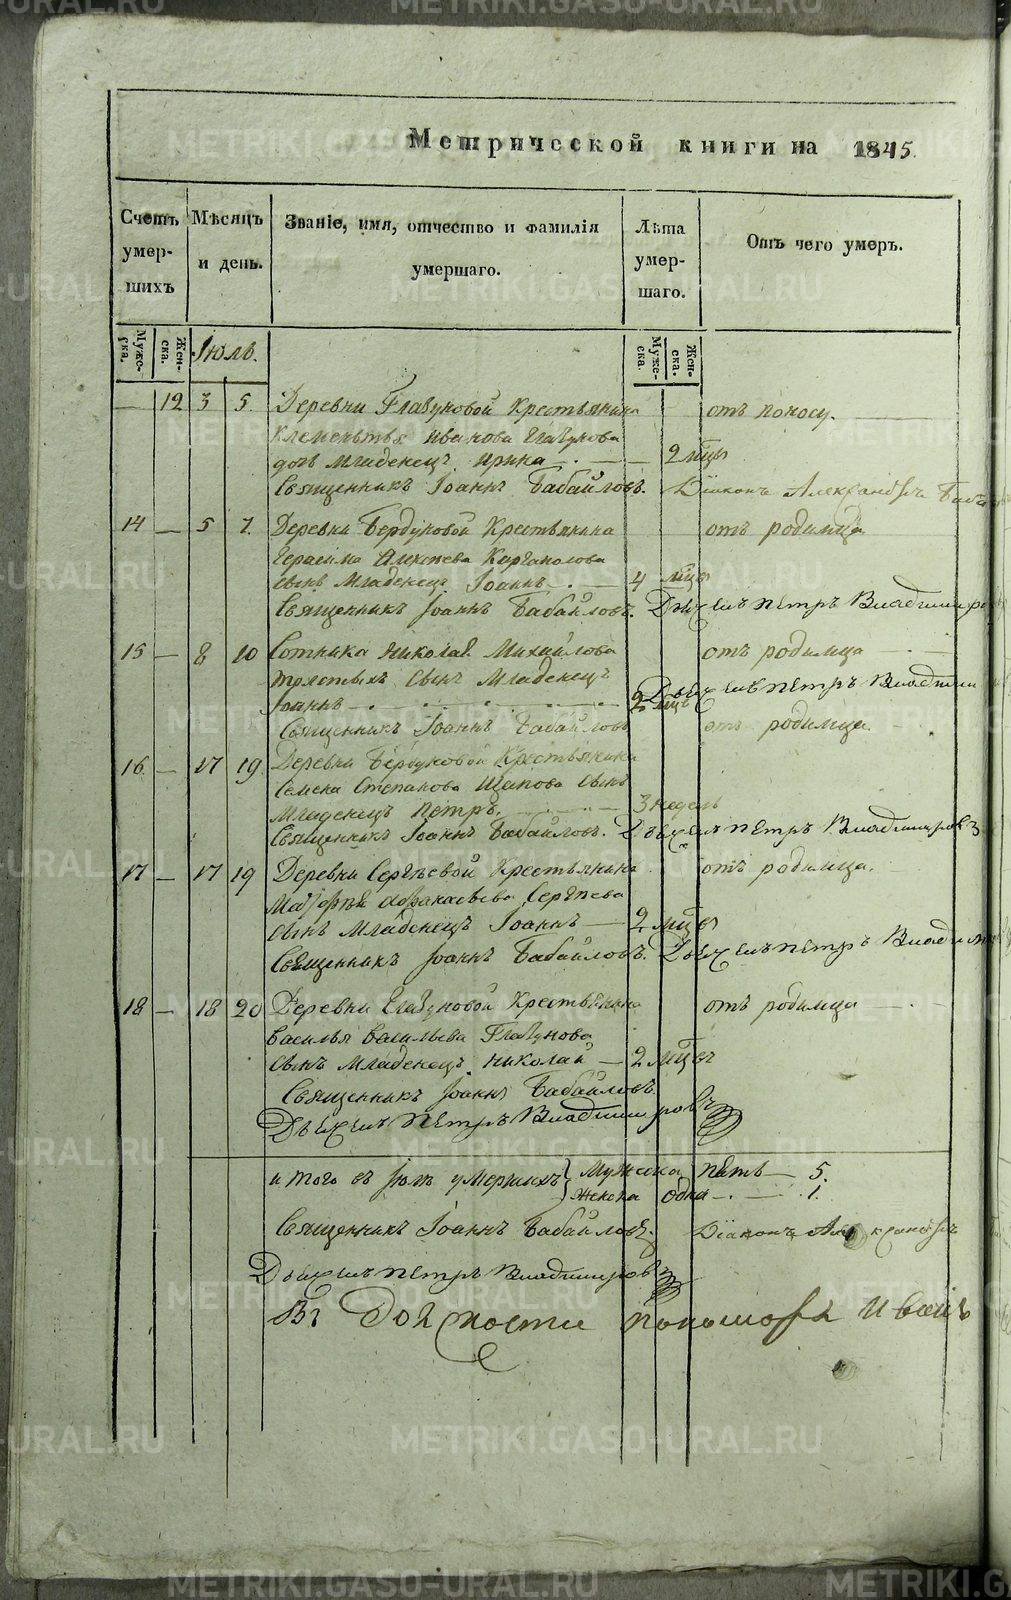 Метрической книги на 1845.
Счетъ умер- шихъ
Мѣсяцъ и день.
Званіе, имя, отчество и фамилія умершаго.
Лѣта умер- шаго.
Отъ чего умеръ.
Муже- ска.
Жен- ска.
Іюль.
Муже- ска.
Жен- ска.
— 12 3 5. Деревни Глазуновой Крестьянина отъ поносу.
Клементья Иванова Глазунова
дочь Младенецъ Ирина — 2 мѣцы
Священникъ Іоаннъ Бабайловъ. Діаконъ Александръ
14 — 5 7. Деревни Бердюковой Крестьянина отъ родимца
Герасима Алексѣева Каргаполова
сынъ Младенецъ Іоаннъ — 4 мѣцы
Священникъ Іоаннъ Бабайловъ. Дьячекъ Петръ Владимиро
15 — 8 10 Сотника Николая Михайлова отъ родимца
Толстыхъ сынъ Младенецъ
Іоаннъ — 2 мѣцы Дьячекъ Петръ Владими
Священникъ Іоаннъ Бабайловъ отъ родимца.
16 — 17 19. Деревни Бердюковой Крестьянина
Семена Степанова Щапова сынъ
Младенецъ Петръ. — 3 недель
Священникъ Іоаннъ Бабайловъ. Дьячекъ Петръ Владимировъ
17 — 17 19 Деревни Сергѣевой Крестьянина отъ родимца.
Сергѣева
сынъ Младенецъ Іоаннъ — 2 мѣцы
Священникъ Іоаннъ Бабайловъ. Дьячекъ Петръ Владим
18 — 18 20 Деревни Глазуновой Крестьянина отъ родимца
Василья Васильева Глазунова
сынъ Младенецъ Николай — 2 мѣцы
Священникъ Іоаннъ Бабайловъ
Дьячекъ Петръ Владимировъ
и того въ Іюлѣ умершихъ Мужеска пять — 5.
Женска одна — 1.
Священникъ Іоаннъ Бабайловъ. Діаконъ Александръ
Дьячекъ Петръ Владимировъ
Въ Должности пономаря Иванъ
METRIKI.GASO-URAL.RU